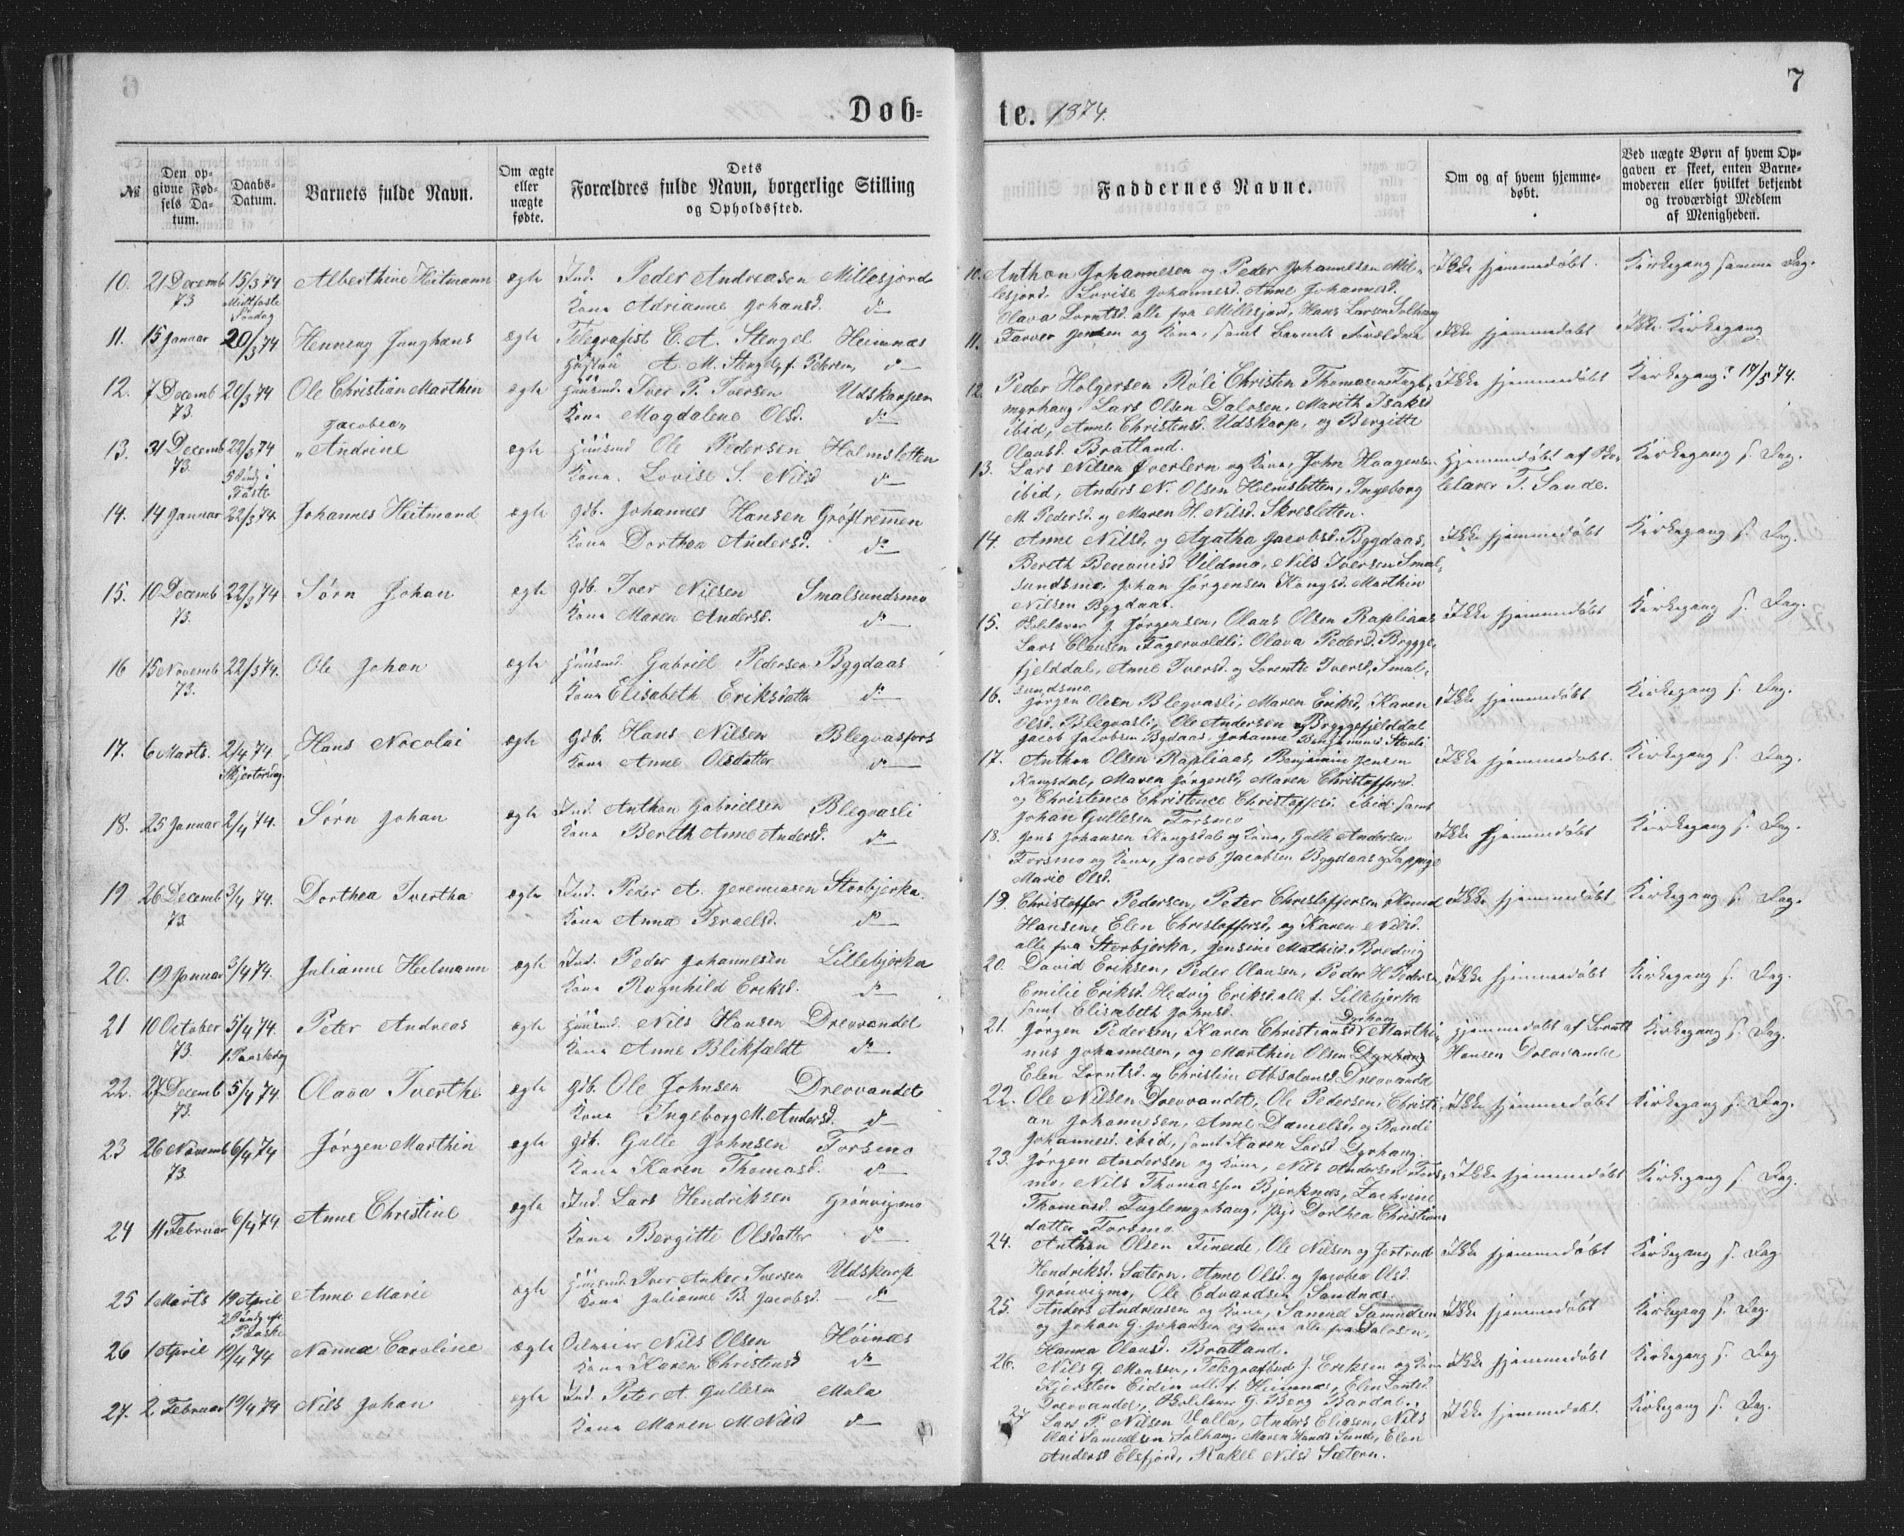 6
Døb-
№
Den op-
givne Fød-
sels Da-
tum.
Daabs-
Datum.
Barnets fulde Navn.
Om ægte
eller
uægte
fødte.
Dets
Forældres fulde Navn, borgerlige Stilling
og Opholdssted.
10. 21 Decemb 15/3 74 Alberthine Heitmann ægte Ind. Peder Andreasen Millesjord
73 Midfaste Kone Adrianne Johansd. do
Søndag
11. 15 Januar 20/3 74 Henning Junghans ægte Telegrafist C. A. Stengel Heimnæs
Hustru A. M. Stengel, f. Petersen, do
12. 7 Decemb 20/3 74 Ole Christian Marthin ægte Huusmd. Iver P. Iversen Udskarpen
73. Kone Magdalene Olsd. do
Jacobea
13. 31 Decemb 22/3 74 Andrine ægte Huusmd Ole Pedersen Holmsletten
73. 5 Sønd i Kone Lovise S. Nilsd do
Faste
14. 14 Januar 22/3 74. Johannes Heitmand ægte Gdb. Johannes Hansen Grøftremmen
Kone Dorthea Andersd. do
15. 10 Decemb 22/3 74 Sørn Johan ægte Gdb. Iver Nilsen Smalsundsmo
73. Kone Maren Andersd. do
16 15 Novemb 22/3 74. Ole Johan ægte Huusmd. Gabriel Pedersen Bygdaas
73. Kone Elisabeth Eriksdatter do
17. 6 Marts. 2/4 74 Hans Nocolai ægte Gdb. Hans Nilsen Blegvasfors
Skjertorsdag. Kone Anne Olsdatter do
18. 25 Januar 2/4 74. Sørn Johan ægte Ind. Anthon Gabrielsen Blegvasli
Kone Bereth Anne Andersd. do
19 26 Decemb 3/4 74. Dorthea Ivertha ægte Ind. Peder A. Jeremiasen Storbjerka
73. Kone Anna Israelsd. do
20. 19 Januar 3/4 74. Julianne Heitmann ægte Ind. Peder Johannesen Lillebjerka
Kone Ragnhild Eriksd. do
21 10 October 5/4 74. Peter Andreas ægte Huusmd. Nils Hansen Drevvandet
73. 1 Paaskedag Kone Anne Blikfældt do
22. 27 Decemb 5/4 74 Olava Iverthe ægte Gdb. Ole Johnsen Drevvandet
73. Kone Ingeborg M. Andersd. do
23 26 Novemb 6/4 74 Jørgen Marthin ægte Gdb. Gulle Johnsen Forsmo
73. Kone Karen Thomasd. do
24 11 Februar 6/4 74. Anne Christine ægte Ind. Lars Hendriksen Grønvigmo
Kone Bergitte Olsdatter do
25 1 Marts 19 April Anne Marie ægte Huusmd. Iver Anker Iversen Udskarp
2 Sønd eft. Kone Julianne B. Jacobsd. do
Paaske
26 1 April 19/4 74 Nanna Caroline ægte Nils Olsen Høinæs
Kone Karen Christensd do
27. 2 Februar 19/4 74 Nils Johan ægte Ind. Peter A. Gullesen Mula
Kone Maren M. Nilsd do
te. 1874.
7
Faddernes Navne.
Om og af hvem hjemme-
døbt.
Ved uægte Børn af hvem Op-
gaven er skeet, enten Barne-
moderen eller hvilket bekjendt
og troværdigt Medlem
af Menigheden.
10. Anthon Johannesen og Peder Johannesen Mil- Ikke hjemmedøbt. Kirkegang samme Dag.
lesjord, Lovise Johannesd. Anne Johannesd.
Olava Lorntsd. alle fra Millesjord, Hans Larsen Solhaug
11. Farver Jensen og Kone, samt Barnets Forældre Ikke hjemmedøbt Ikke Kirkegang
12. Peder Holgersen Røli Christen Thomasen Fugle- Ikke hjemmedøbt Kirkegang? 17/5 74.
myrhaug, Lars Olsen Dalosen, Marith Isaksd
ibid, Anne Christensd. Udskarp, og Bergitte
Olausd. Bratland.
13. Lars Nilsen Overlern og Kone, John Haagensen Hjemmedøbt af Sko- Kirkegang s. Dag.
ibid, Anders N. Olsen Holmsletten, Ingeborg lelærer T. Sande.
M. Pedersd. og Maren H. Nilsd. Skresletten.
14. Anne Nilsd. og Agatha Jacobsd. Bygdaas, Ikke hjemmedøbt Kirkegang s. Dag.
Bereth Benonisd Vildmo, Nils Iversen Smal-
sundsmo, Johan Jørgensen Kangsd. Marthin
Nilsen Bygdaas.
15. Skolelærer J. Jørgensen, Olaus Olsen Rapliaas, Ikke hjemmedøbt Kirkegang s. Dag.
Lars Clausen Fagervoldli, Olava Pedersd. Brygge-
fjeldsdal, Anne Iversd. og Lorentse Iversd, Smal-
sundsmo.
16. Jørgen Olsen Blegvasli, Maren Eriksd, Karen Ikke hjemmedøbt Kirkegang s. Dag.
Olsd. Blegvasli, Ole Andersen Bryggefjelddal
Jacob Jacobsen Bygdaas, Johanne Benjaminsd. Storli
17. Anthon Olsen Rapliaas, Benjamin Jensen Ikke hjemmedøbt. Kirkegang s. Dag.
Kangsdal, Maren Jørgensd, Maren Christoffersd.
og Christence Christence Christoffersd. ibid. samt
Johan Gullesen Forsmo
18. Jens Johansen Kangsdal og Kone, Gulle Andersen Ikke hjemmedøbt Kirkegang s. Dag.
Forsmo og Kone, Jacob Jacobsen Bygdaas og Lappige
Marie Olsd.
19. Christoffer Pedersen, Peter Christoffersen Ikke hjemmedøbt Kirkegang s. Dag.
Hansen, Elen Christoffersd, og Karen Nilsd.
alle fra Storbjerka, Jensine Mathisd. Bredvig
20. David Eriksen, Peder Olausen, Peder H. Pedersen Ikke hjemmedøbt Kirkegang s. Dag.
Emilie Eriksd. Hedvig Eriksd. alle f. Lillebjerka
samt Elisabeth Johnsd. Dyrhaug
21. Jørgen Pedersen, Karen Christiansd Marthi- Hjemmedøbt af Lorntt Kirkegang s. Dag.
nus Johannesen, og Marthin Olsen Dyrhaug Hansen Drevvandet
Elen Lorntsd. og Christine Absolonsd. Drevvandet
22. Ole Nilsen Drevvandet, Ole Pedersen, Christi- Ikke hjemmedøbt Kirkegang s. Dag.
an Johannesen, Anne Danielsd, og Randi
Johannesd. ibid, samt Karen Larsd Dyrhaug.
23. Jørgen Andersen og Kone, Nils Andersen Fors- Ikke hjemmedøbt Kirkegang s. Dag.
mo, Nils Thomassen Bjerknæs, Zachrine
Thomasd. Fuglemyrhaug, Pige Dorthea Christians
datter Forsmo
24. Anthon Olsen Fineide, Ole Nilsen og Gertrud Ikke hjemmedøbt Kirkegang s. Dag
Hendriksd. Sætern. Anne Olsd. og Jacobea Olsd.
Grønvigmo, Ole Edvardsen Sandnæs.
25. Anders Andreasen og Kone, Samuel Samuelsen Ikke hjemmedøbt Kirkegang s. Dag.
og Johan G. Johansen og Kone alle fra Dalosen,
Hanna Olausd. Bratland.
26. Nils G. Monsen, Telegrafbud J. Eriksen og Kone Ikke hjemmedøbt Kirkegang s. Dag
Kjersten Eidin alle f. Heimnæs, Elen Lorntsd.
Drevvandet, Skolelærer G. Berg Bardal.
27 Lars P. Nilsen Valla, Anders Eliasen, Nils Ikke hjemmedøbt. Kirkegang s. Dag.
Olai Samuelsen Solhaug, Maren Hansd Sund, Elen
Andersd Elsfjord, Rakel Nilsd Sætern.